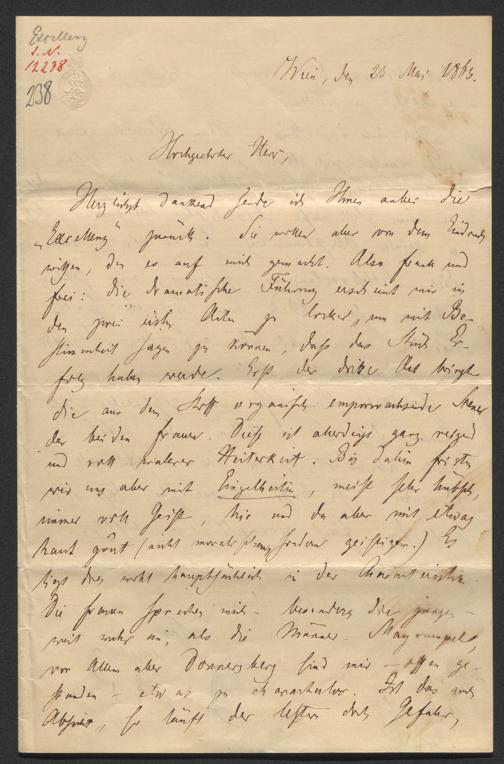 Excellenz
I. N.
12238
238
Wien, den 23 Mai 1863.
Hochgeehrter Herr,
Herzlichst dankend sende ich Ihnen anbei die
„Excellenz“ zurück. Sie wollen aber von dem Eindruck
wissen, den es auf mich gemacht. Also frank und
frei: die dramatische Führung erscheint mir in
den zwei ersten Akten zu locker, um mit Be-
stimmtheit sagen zu können, daß das Stück Er-
folg haben werde. Erst der dritte Akt bringt
die aus dem Stoff organisch emporwachsende Scene
der beiden Frauen. Diese ist allerdings ganz reizend
und voll wahrer Heiterkeit. Bis dahin fristen
wir uns aber mit Einzelheiten, meist sehr hübsch,
immer voll Geist, hie und da aber mit etwas
haut goût (nicht moralischem, sondern geistigem.) Es
liegt dies wohl hauptsächlich in der Charakteristik.
Die Frauen sprechen mich – besonders die jungen –
weit mehr an, als die Männer.
vor Allem aber Donnersberg sind mir – offen ge-
standen – etwas zu charakterlos. Ist das auch
Absicht, so läuft der letztere doch Gefahr,